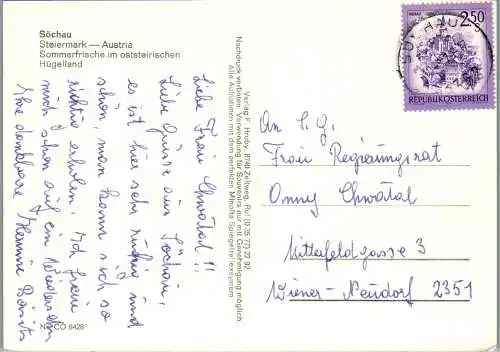 Söchau
Steiermark — Austria
Sommerfrische im oststeirischen
Hügelland
Liebe Frau Chwátal!!
Liebe Grüsse aus Söchau,
es ist hier sehr ruhig und
schön, man kann sich so
richtig erholen. Ich freue
mich schon auf ein Wiedersehen
Ihre dankbare Hermine
NECO 6426
Verlag F. Hruby, 8740 Zeltweg, Ruf (0 35 77) 22 92
Nachdruck verboten. Verwendung für Souvenirs nur mit Genehmigung möglich.
Alle Aufnahmen mit dem perfekten Minolta Spiegelreflexsystem
2.50
S
SÖCHAU
REPUBLIK ÖSTERREICH
An S. G.
Frau Regierungsrat
Anny Chwátal
Mitterfeldgasse 3
Wiener-Neudorf 2351